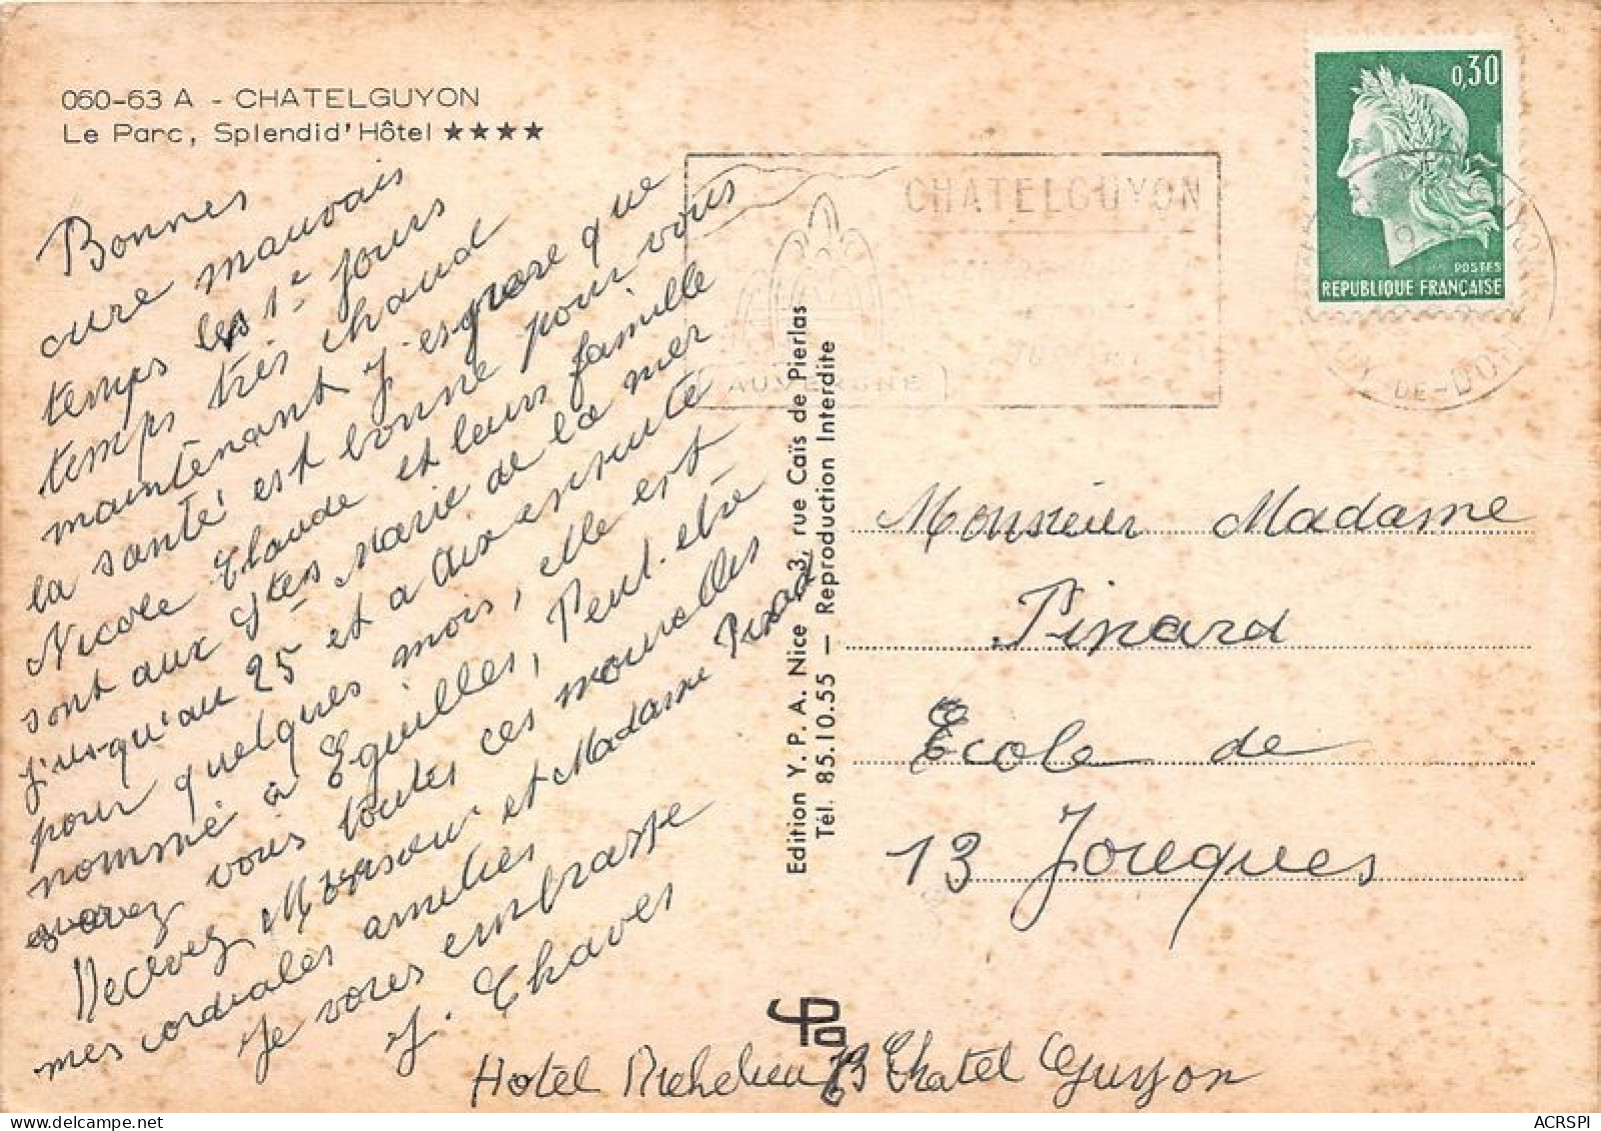 060-63 A - CHATELGUYON
Le Parc, Splendid'Hôtel ★★★★
Bonnes
cure mauvais
temps les 1e jours
temps très chaud
maintenant j'espère que
la santé est bonne pour vous
Nicole Claude et leurs famille
sont aux Stes Marie de la mer
jusqu'au 25 et a Aix ensuite
pour quelques mois, elle est
nommé à Eguilles, Peut-etre
avez vous toutes ces nouvelles
Recevez Monsieur et Madame Pinard
mes cordiales amitiés
Je vous embrasse
J. Chaves
Hotel Richelieu 63 Chatel Guyon
CHATELGUYON
AUVERGNE
Edition Y. P. A. Nice 3, rue Caïs de Pierlas
Tél. 85.10.55 — Reproduction Interdite
0,30
POSTES
REPUBLIQUE FRANÇAISE
PUY-DE-DOME
Monsieur Madame
Pinard
Ecole de
13 Jouques
ACRSPI